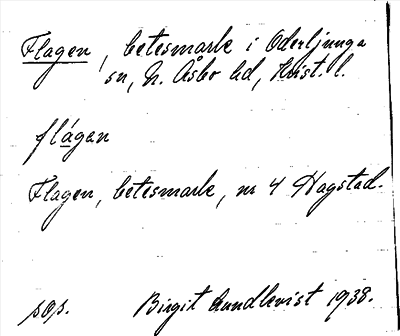 Flagen, betesmark i Oderljunga
sn, N. Åsbo hd, Krist. l.
flágen
Flagen, betesmark, nr 4 Hagstad.
sop. Birgit Lundkvist 1938.